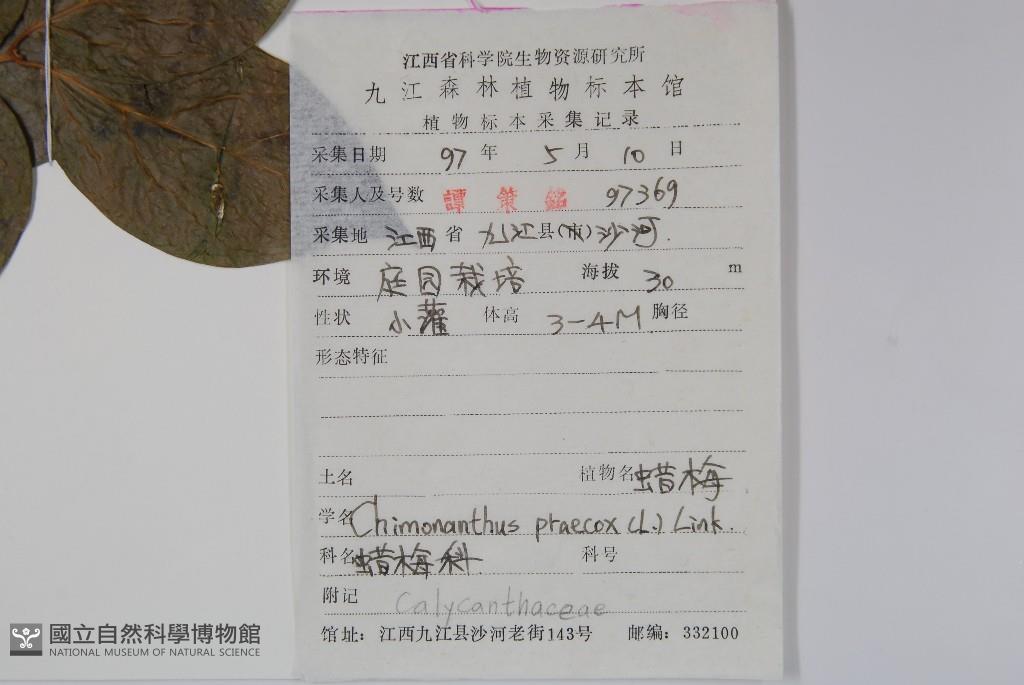 江西省科学院生物资源研究所
九江森林植物标本馆
植物标本采集记录
采集日期 97 年 5 月 10 日
采集人及号数 譚策銘 97369
采集地 江西 省 九江 县(市) 沙河.
环境 庭园栽培 海拔 30 m
性状 小灌 体高 3-4M 胸径
形态特征
土名 植物名 蜡梅
学名 Chimonanthus praecox (L.) Link.
科名 蜡梅科 科号
附记 Calycanthaceae
馆址：江西九江县沙河老街143号 邮编：332100
國立自然科學博物館
NATIONAL MUSEUM OF NATURAL SCIENCE